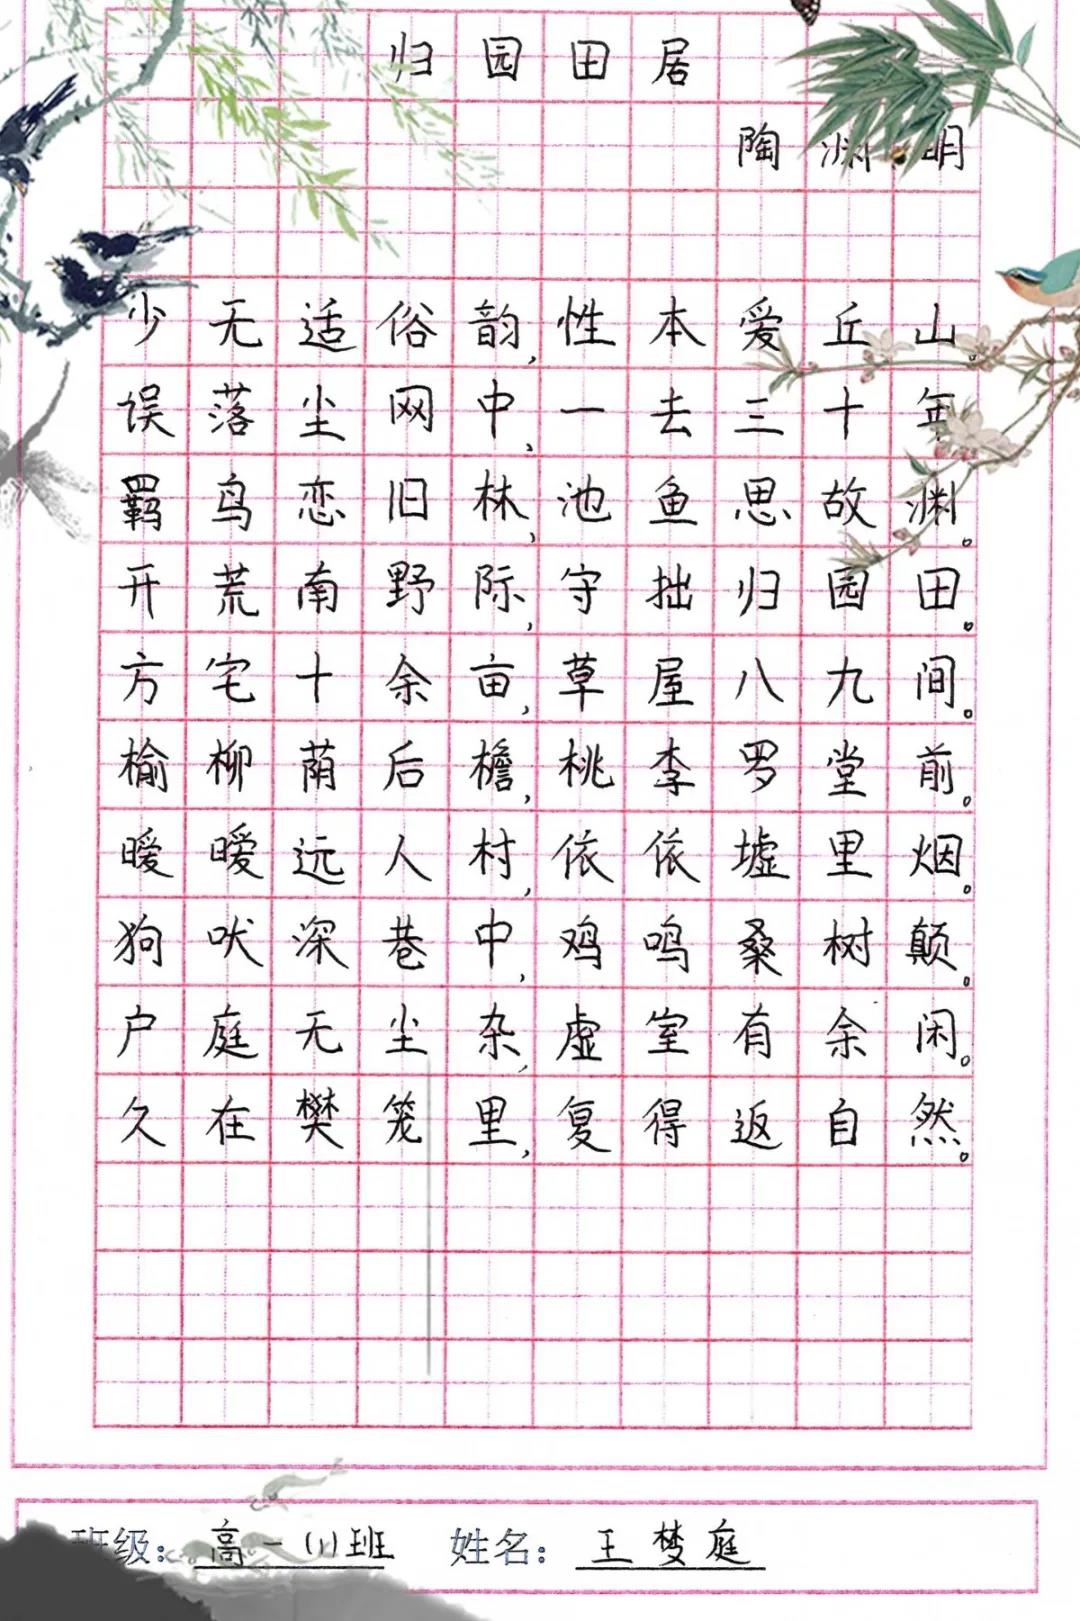 归园田居
陶渊明
少无适俗韵,性本爱丘山。
误落尘网中,一去三十年
羁鸟恋旧林,池鱼思故渊。
开荒南野际,守拙归园田。
方宅十余亩,草屋八九间。
榆柳荫后檐,桃李罗堂前。
暧暧远人村,依依墟里烟。
狗吠深巷中,鸡鸣桑树颠。
户庭无尘杂,虚室有余闲。
久在樊笼里,复得返自然。
班级：高一(1)班 姓名：王梦庭